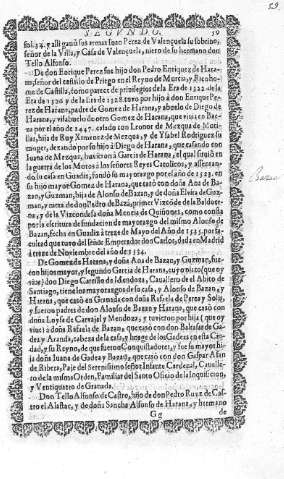 SEGVNDO. 59
fol. 24. y alli ganò sus armas Iuan Perez de Valençuela su sobrino,
señor de la Villa, y Casa de Valençuela, nieto de su hermano don
Tello Alfonso.
De don Enrique Perez fue hijo don Pedro Enriquez de Harana, señor del castillo de Priego en el Reyno de Murcia, y Ricohome
de Castilla, como parece de privilegios de la Era de 1322. de la
Era de 1320 y de la Era de 1328. tuvo por hijo à don Enrique Perez
de Harana, padre de Gomez de Harana, y abuelo de Diego de
Harana, y visabuelo de otro Gomez de Harana, que vivia en Baeza
por el año de 1447. casado con Leonor de Mezqua de Motillas,
hija de Ruy Ximenez de Mezqua, y de Ysabel Rodriguez
dexando por su hijo à Diego de Harana, que casando con
Iuana de Mezqua, huvieron à Garcia de Harana, el qual sirviò en
la guerra de los Moros à los señores Reyes Catolicos, y assentando
su casa en Guadix, fundò su mayorazgo por el año de 1523. en
su hijo mayor Gomez de Harana, que casò con doña Ana de Bazan,
y Guzman, hija de Alonso de Bazan, y de doña Elvira de Guzman,
nieta de don Pedro de Bazã, primer Vizcõde de la Valduerna,
y de la Vizcondesa doña Mencia de Quiñones, como consta
por la escritura de fundacion de mayorazgo del mismo Alonso de
Bazan, fecha en Guadix à treze de Mayo del Año de 1535. por facultad
que tuvo del señor Emperador don Carlos, dada en Madrid
à treze de Noviembre del año de 1534.
De Gomez de Harana, y doña Ana de Bazan, y Guzman, fueron
hijos mayor, y segundo Garcia de Harana, cuyo nieto (que oy
vive) don Diego Carrillo de Mendoza, Cavallero del Abito de
Santiago, tiene los mayorazgos de su casa, y Alonso de Bazan, y
Harana, que casò en Granada con doña Rafaela de Perea y Solis,
y fueron padres de don Alonso de Bazan y Harana, que casò con
doña Luysa de Carvajal y Mendoza, y tuvieron por hija (que oy
vive) à doña Rafaela de Bazan, que casò con don Baltasar de Gadea
y Aranda, cabeza de la casa, y linage de los Gadeas en esta Ciudad,
y su Reyno, de que fueron Conquistadores, y fue su mayor hija
doña Iuana de Gadea y Bazan, que casò con don Gaspar Afan
de Ribera, Paje del Serenissimo señor Infante Cardenal, Cavallero
de la misma Orden, Familiar del Santo Oficio de la Inquisicion,
y Ventiquatro de Granada.
Don Tello Alfonso de Castro, hijo de don Pedro Ruyz de Castro
el Alastar, y de doña Sancha Alfonso de Harana, y hermano
Gg de
59
Bazan